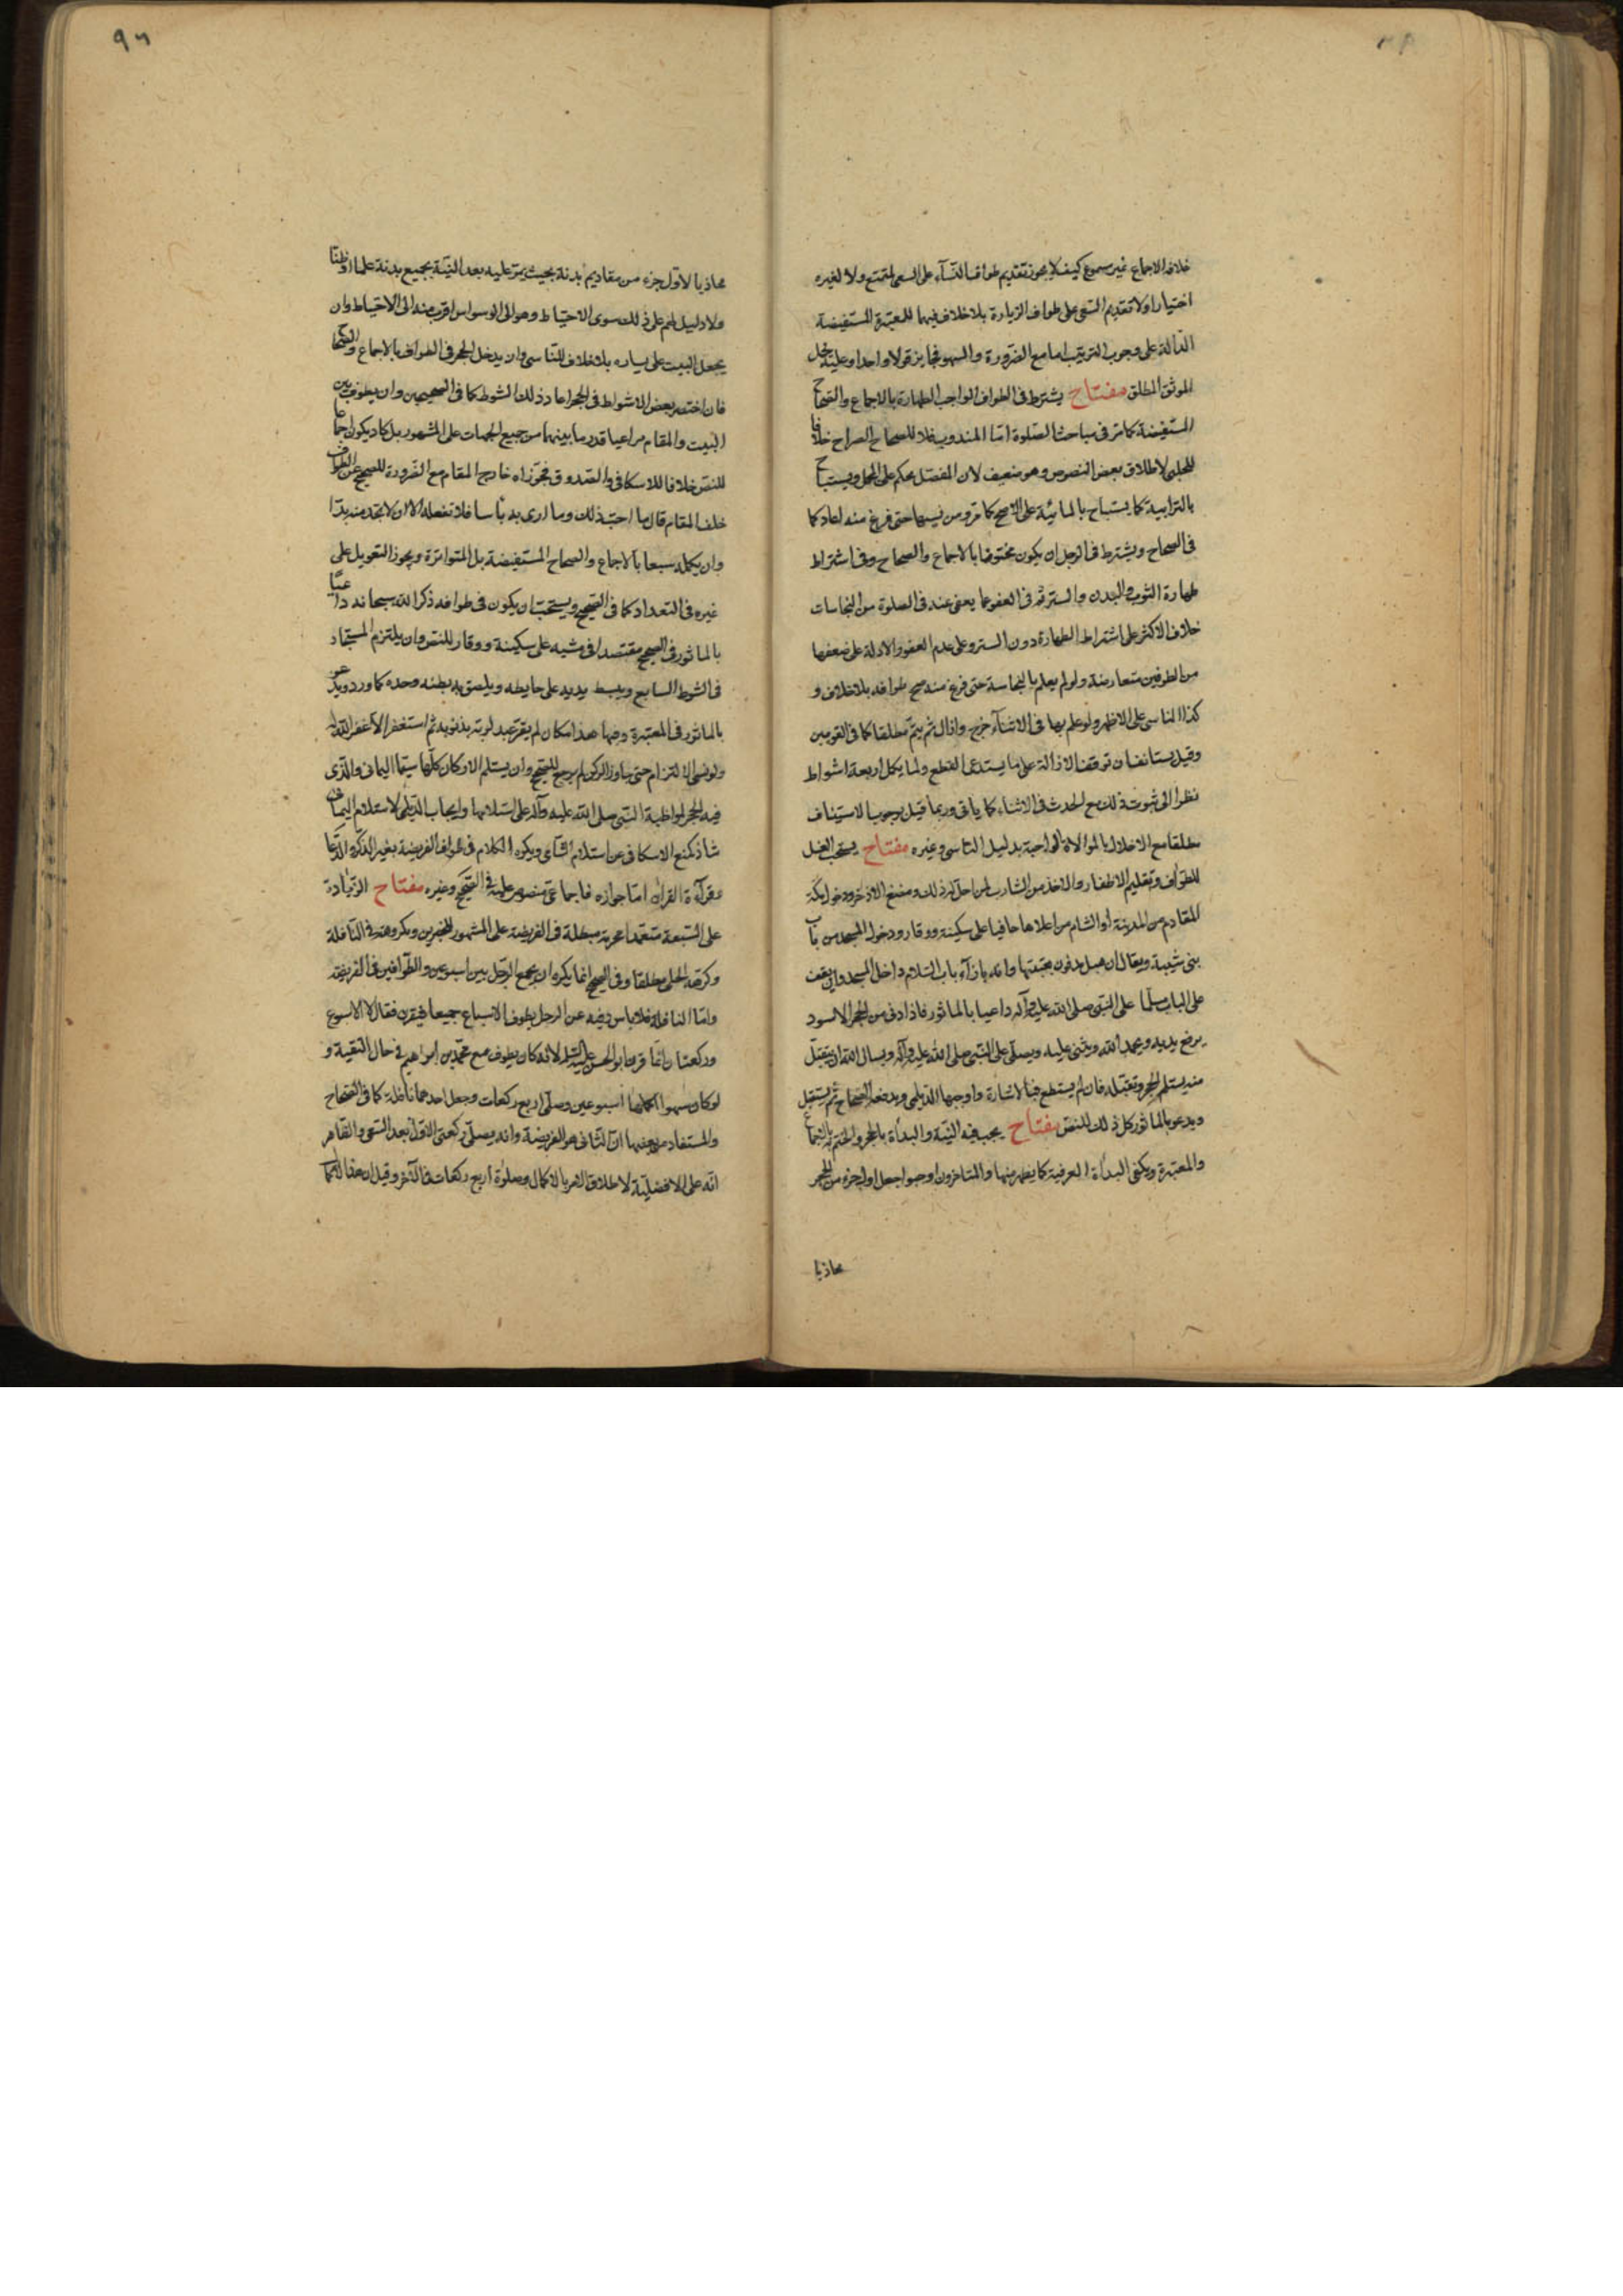 خلاف الاجماع غير مسموع كيف لا يجوز تقديم طواف النسآء على السعى لمتمتع ولا لغيره
اختيارا ولا تقديم السعى على طواف الزيارة بلا خلاف فيهما للمعتبرة المستفيضة
الدالة على وجوب الترتيب اما مع الضرورة والسهو فجايز قولا واحدا وعليه يحمل
الموثق المطلق مفتاح يشترط فى الطواف الواجب الطهارة بالاجماع والصحاح
المستفيضة كما مر فى مباحث الصلوة اما المندوب فلا للصحاح الصراح خلافا
للحلبى لاطلاق بعض النصوص وهو ضعيف لان المفصل يحكم على المجمل ويستباح
بالترابية كما يستباح بالمائية على الاصح كما مر ومن نسيها حتى فرغ منه اعاد كما
فى الصحاح ويشترط فى الرجل ان يكون مختونا بالاجماع والصحاح وفى اشتراط
طهارة الثوب والبدن والستر ثم فى العفو عما يعفى عنه فى الصلوة من النجاسات
خلاف الاكثر على اشتراط الطهارة دون الستر وعلى عدم العفو والادلة على ضعفها
من الطرفين متعارضة ولو لم يعلم بالنجاسة حتى فرغ منه صح طوافه بلا خلاف و
كذا الناسى على الاظهر ولو علم بها فى الاثنآء خرج وازال ثم يتم مطلقا كما فى القويين
وقيل يستانف ان توقف الازالة على ما يستدعى القطع ولما يكمل اربعة اشواط
نظرا الى ثبوت ذلك مع الحدث فى الاثناء كما ياتى وربما قيل بوجوب الاستيناف
مطلقا مع الاخلال بالموالاة الواجبة بدليل التاسى وغيره مفتاح يستحب الغسل
للطواف وتقليم الاظفار والاخذ من الشارب لمن احل قبل ذلك ومضغ الاذخر ودخول مكة
للقادم من المدينة او الشام من اعلاها حافيا على سكينة ووقار ودخول المسجد من باب
بنى شيبة ويقال ان هبل مدفون بعتبتها وانه بازآء باب السلام داخل المسجد وان يقف
على الباب مسلما على النبى صلى الله عليه وآله داعيا بالماثور فاذا دنى من الحجر الاسود
يرفع يديه ويحمد الله ويثنى عليه ويصلى على النبى صلى الله عليه وآله ويسال الله ان يتقبل
منه يستلم الحجر وتقبله فان لم يستطع فبالاشارة واوجبها الديلمى ويدفعه الصحاح ثم يستقبل
ويدعو بالماثور كل ذلك للنص مفتاح يجب فيه النية والبدأة بالحجر والختم به بالاجماع
والمعتبرة ويكفى البدأة العرفية كما يظهر منها والمتاخرون اوجبوا جعل اول جزء من الحجر
محاذيا
٩٦
محاذيا لاول جزء من مقاديم بدنة بحيث يمر عليه بعد النية بجميع بدنة علما او ظنا
ولا دليل لهم على ذلك سوى الاحتياط وهو الى الوسواس اقرب منه الى الاحتياط وان
يجعل البيت على يساره بلا خلاف للتاسى وان يدخل الحجر فى الطواف بالاجماع والصحاح
فان اختصر بعض الاشواط فى الحجر اعاد ذلك الشوط كما فى الصحيحين وان يطوف بين
البيت والمقام مراعيا قدر ما بينهما من جميع الجهات على المشهور بل كاد يكون اجماعا
للنص خلافا للاسكافى والصدوق فجوزاه خارج المقام مع الضرورة للصحيح عن الطواف
خلف المقام قال ما احب ذلك وما ارى به بأسا فلا تفعله الا ان لا تجد منه بدا
وان يكمله سبعا بالاجماع والصحاح المستفيضة بل المتواترة ويجوز التعويل على
غيره فى التعداد كما فى الصحيح ويستحب ان يكون فى طوافه ذكرا لله سبحانه داعيا
بالماثور فى الصحيح مقتصدا فى مشيه على سكينة ووقار للنص وان يلتزم المستجار
فى الشوط السابع ويبسط يديه على حايطه ويلصق به بطنه وخده كما ورد ويدعو
بالماثور فى المعتبرة وفيها هذا مكان لم يقر عبد لربه بذنوبه ثم استغفر الا غفر الله له
ولو نسى الالتزام حتى جاوز الركن لم يرجع للصحيح وان يستلم الاركان كلها سيما اليمانى والذى
فيه الحجر لمواظبة النبى صلى الله عليه وآله على استلامها وايجاب الديلمى لاستلام اليمانى
شاذ كمنع الاسكافى عن استلام الشامى ويكره الكلام فى طواف الفريضة بغير الذكر والدعا
وقرآءة القران اما جوازه فاجماعى منصوص عليه فى الصحيح وغيره مفتاح الزيادة
على السبعة متعمدا محرمة مبطلة فى الفريضة على المشهور للخبرين ومكروهة فى النافلة
وكرهه الحلى مطلقا وفى الصحيح انما يكره ان يجمع الرجل بين اسبوعين والطوافين فى الفريضة
واما النافلة فلا باس وفيه عن الرجل يطوف الاسباع جميعا فيقرن فقال لا الا اسبوع
وركعتان وانما قرن ابو الحسن عليه السلم لانه كان يطوف مع محمد بن ابراهيم فى حال التقية و
لو كان سهوا اكملها اسبوعين وصلى اربع ركعات وجعل احدهما نافلة كما فى الصحاح
والمستفاد من بعضها ان الثانى هو الفريضة وانه يصلى ركعتى الاول بعد السعى والظاهر
انه على الافضلية لاطلاق الامر بالاكمال وصلوة اربع ركعات فى الآخر وقيل ان هذا الاكما